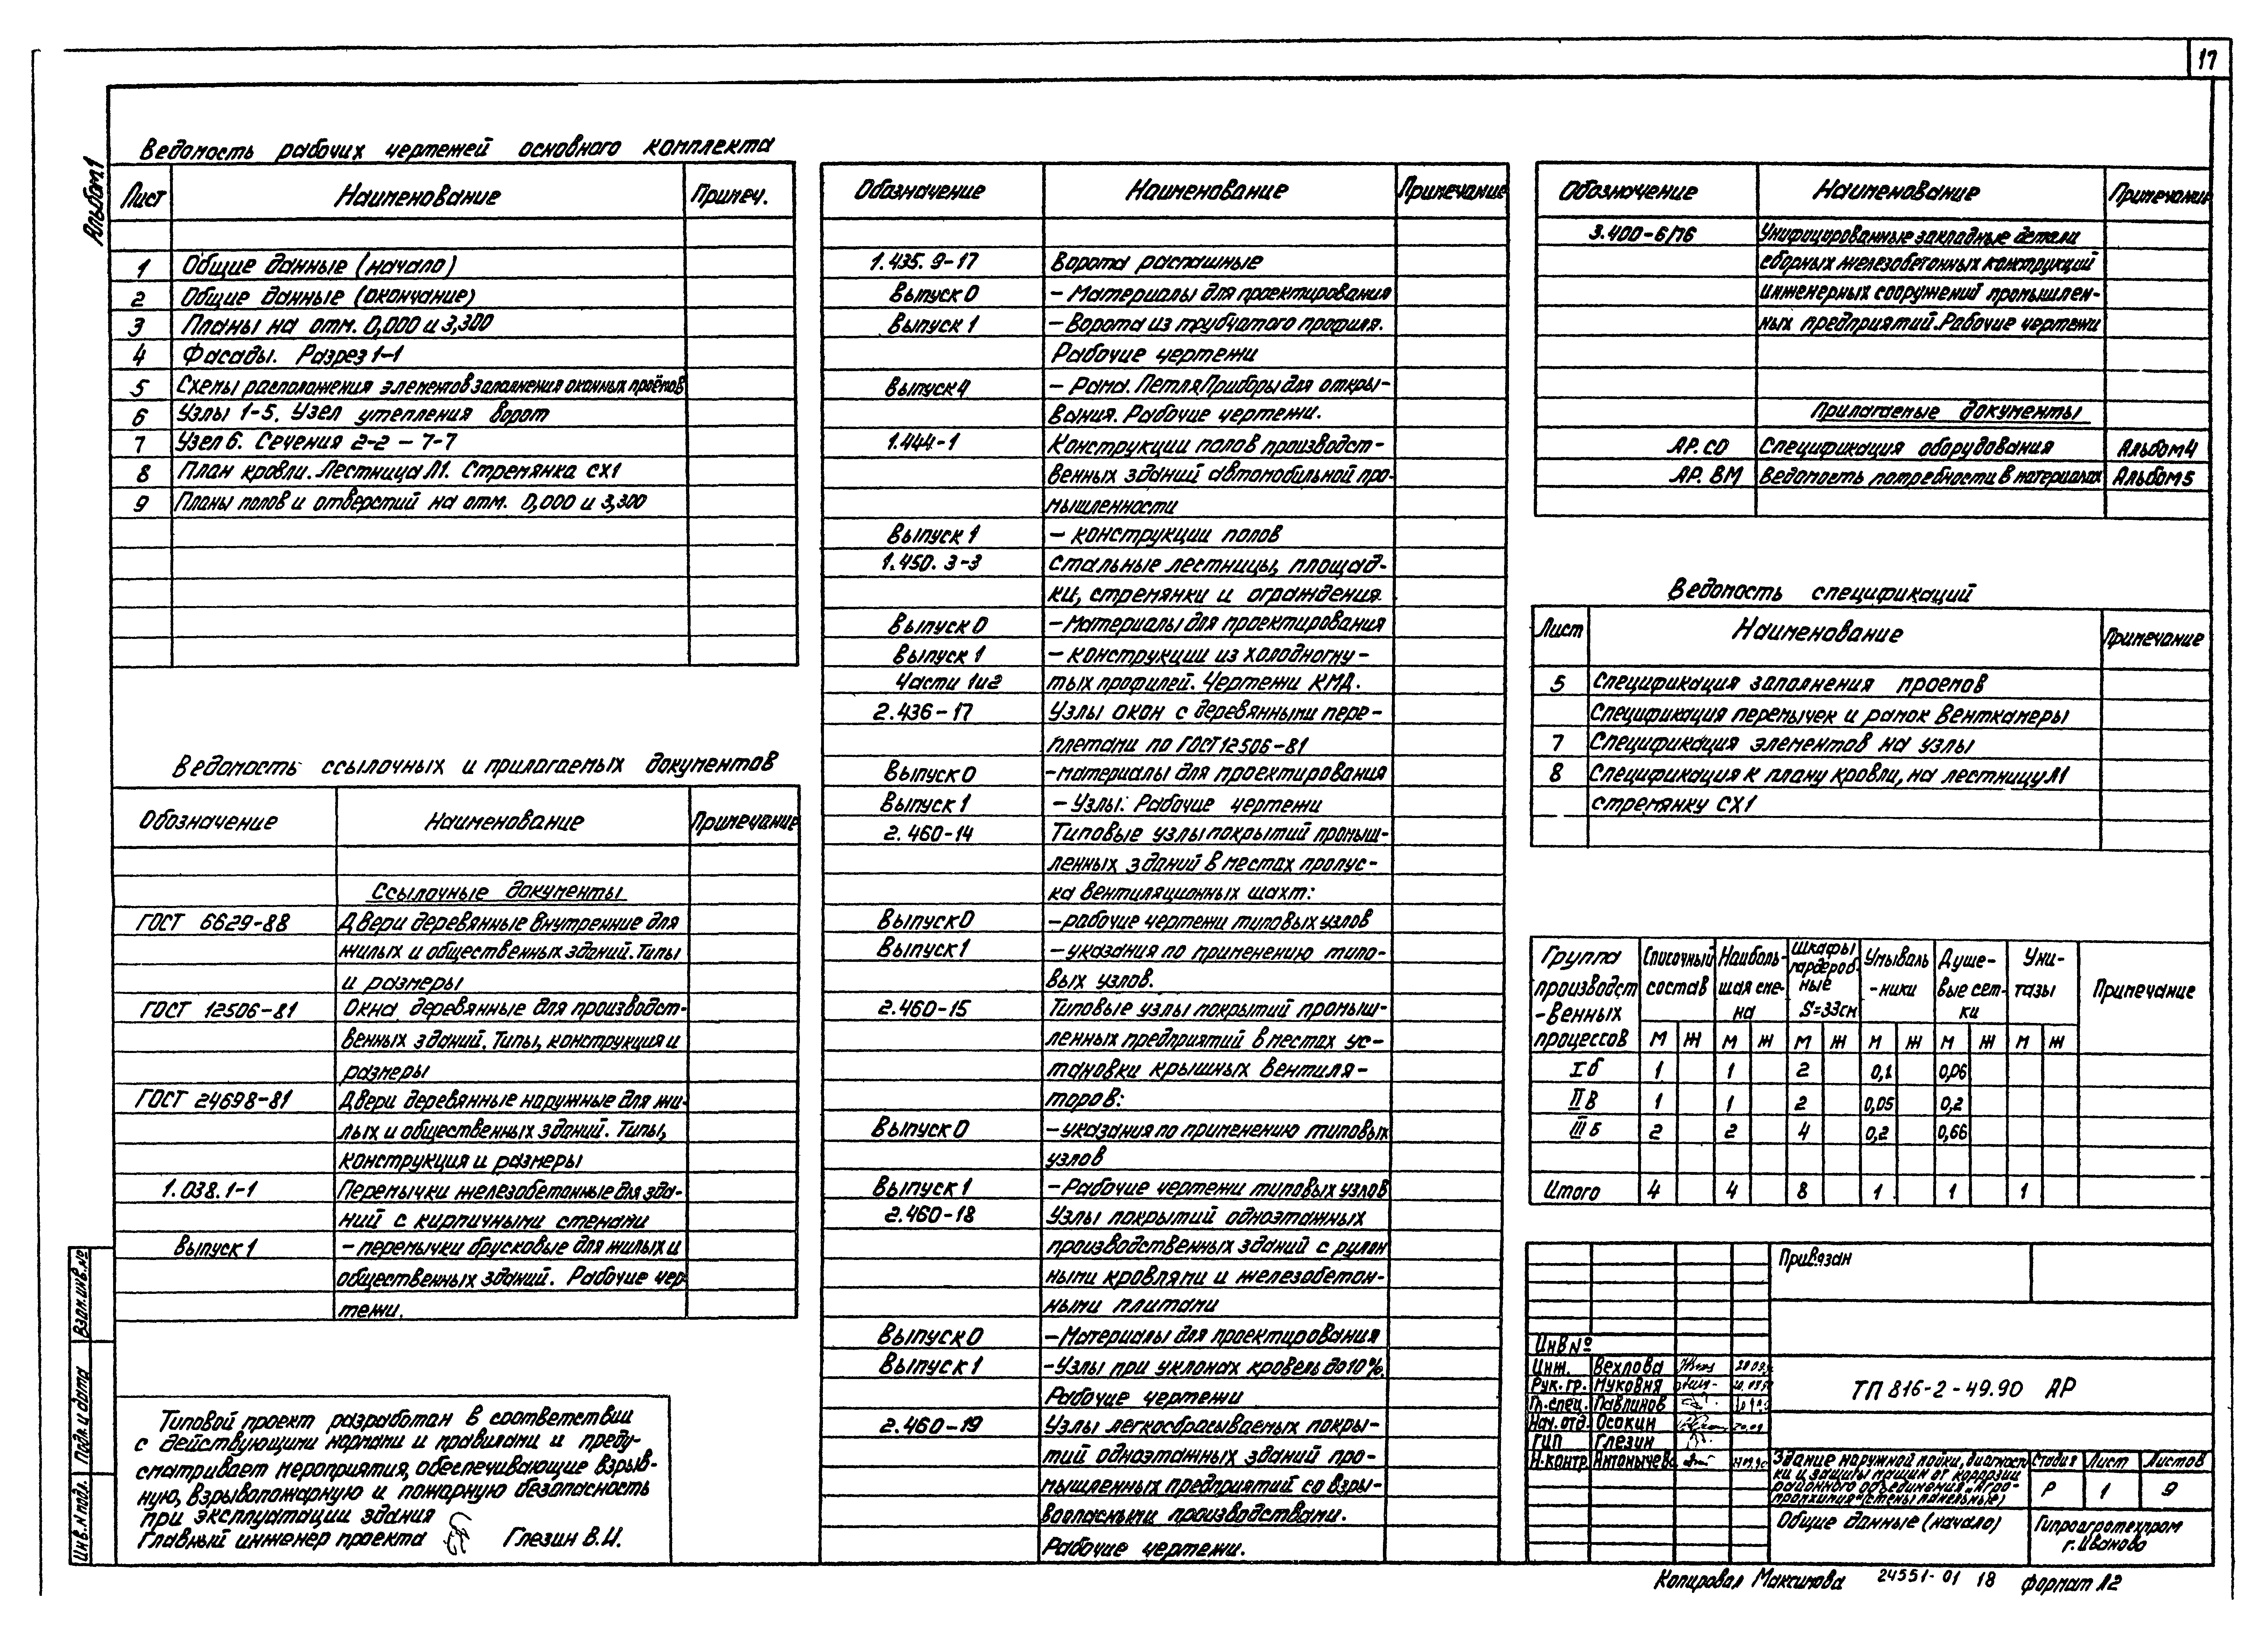 17
Альбом 1
Ведомость рабочих чертежей основного комплекта
Лист Наименование Примеч.
1 Общие данные (начало)
2 Общие данные (окончание)
3 Планы на отм. 0,000 и 3,300
4 Фасады. Разрез 1-1
5 Схемы расположения элементов заполнения оконных проёмов
6 Узлы 1-5. Узел утепления ворот
7 Узел 6. Сечения 2-2 – 7-7
8 План кровли. Лестница Л1. Стремянка СХ1
9 Планы полов и отверстий на отм. 0,000 и 3,300
Ведомость ссылочных и прилагаемых документов
Обозначение Наименование Примечание
Ссылочные документы
ГОСТ 6629-88 Двери деревянные внутренние для
жилых и общественных зданий. Типы
и размеры
ГОСТ 12506-81 Окна деревянные для производст-
венных зданий. Типы, конструкция и
размеры
ГОСТ 24698-81 Двери деревянные наружные для жи-
лых и общественных зданий. Типы,
конструкция и размеры
1.038.1-1 Перемычки железобетонные для зда-
ний с кирпичными стенами
Выпуск 1 – перемычки брусковые для жилых и
общественных зданий. Рабочие чер-
тежи.
Типовой проект разработан в соответствии
с действующими нормами и правилами и преду-
сматривает мероприятия, обеспечивающие взрыв-
ную, взрывопожарную и пожарную безопасность
при эксплуатации здания
Главный инженер проекта Глезин В.И.
Взам. инв. №
Подп. и дата
Инв. № подл.
Обозначение Наименование Примечание
1.435.9-17 Ворота распашные
Выпуск 0 – Материалы для проектирования
Выпуск 1 – Ворота из трубчатого профиля.
Рабочие чертежи
Выпуск 4 – Рама. Петля. Приборы для откры-
вания. Рабочие чертежи.
1.444-1 Конструкции полов производст-
венных зданий автомобильной про-
мышленности
Выпуск 1 – конструкции полов
1.450.3-3 Стальные лестницы, площад-
ки, стремянки и ограждения
Выпуск 0 – Материалы для проектирования
Выпуск 1 – конструкции из холодногну-
Части 1 и 2 тых профилей. Чертежи КМД.
2.436-17 Узлы окон с деревянными пере-
плетами по ГОСТ 12506-81
Выпуск 0 – материалы для проектирования
Выпуск 1 – Узлы. Рабочие чертежи
2.460-14 Типовые узлы покрытий промыш-
ленных зданий в местах пропус-
ка вентиляционных шахт:
Выпуск 0 – рабочие чертежи типовых узлов
Выпуск 1 – указания по применению типо-
вых узлов.
2.460-15 Типовые узлы покрытий промыш-
ленных предприятий в местах ус-
тановки крышных вентиля-
торов:
Выпуск 0 – указания по применению типовых
узлов
Выпуск 1 – Рабочие чертежи типовых узлов
2.460-18 Узлы покрытий одноэтажных
производственных зданий с рулон
ными кровлями и железобетон-
ными плитами
Выпуск 0 – Материалы для проектирования
Выпуск 1 – Узлы при уклонах кровель до 10%.
Рабочие чертежи
2.460-19 Узлы легкосбрасываемых покры-
тий одноэтажных зданий про-
мышленных предприятий со взры-
воопасными производствами.
Рабочие чертежи.
Обозначение Наименование Примечание
3.400-6/76 Унифицированные закладные детали
сборных железобетонных конструкций
инженерных сооружений промышлен-
ных предприятий. Рабочие чертежи
Прилагаемые документы
АР.СО Спецификация оборудования Альбом 4
АР.ВМ Ведомость потребности в материалах Альбом 5
Ведомость спецификаций
Лист Наименование Примечание
5 Спецификация заполнения проемов
Спецификация перемычек и рамок венткамеры
7 Спецификация элементов на узлы
8 Спецификация к плану кровли, на лестницу Л1
стремянку СХ1
Группа производст-венных процессов Списочный состав Наиболь-шая сме-на Шкафы гардероб-ные S=33см Умываль-ники Душе-вые сет-ки Уни-тазы Примечание
М Ж М Ж М Ж М Ж М Ж М Ж
Iб 1 1 2 0,1 0,06
IIв 1 1 2 0,05 0,2
IIIб 2 2 4 0,2 0,66
Итого 4 4 8 1 1 1
Привязан
Инв №
Инж. Вехлова
Рук. гр. Муковня
Гл. спец. Павлинов
Нач. отд. Осокин
ГИП Глезин
Н. контр. Антонычева
ТП 816-2-49.90 АР
Здание наружной мойки, диагности
ки и защиты машин от коррозии
районного объединения „Агро-
промхимия“ (стены панельные)
Стадия Лист Листов
Р 1 9
Общие данные (начало)
Гипроагротехпром
г. Иваново
Копировал Максимова 24551-01 18 формат А2